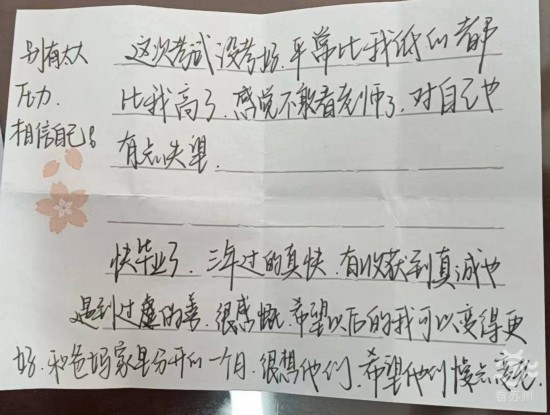 别有太大
压力.
相信自己。
这次考试没考好.平常比我低的都
比我高了.感觉不敢看老师了.对自己也
有点失望.
快毕业了.三年过的真快.有收获到真诚也
遇到过虚伪的善.很感慨.希望以后的我可以变得更
好.和爸妈家里分开的一个月.很想他们.希望他们慢点变老.
看苏州